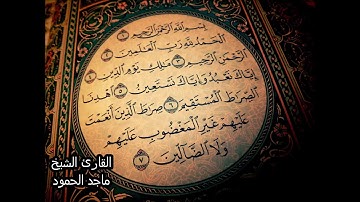 بِسْمِ اللَّهِ الرَّحْمَٰنِ الرَّحِيمِ ١
الْحَمْدُ لِلَّهِ رَبِّ الْعَالَمِينَ ٢
الرَّحْمَٰنِ الرَّحِيمِ ٣ مَالِكِ يَوْمِ الدِّينِ ٤
إِيَّاكَ نَعْبُدُ وَإِيَّاكَ نَسْتَعِينُ ٥ اهْدِنَا
الصِّرَاطَ الْمُسْتَقِيمَ ٦ صِرَاطَ الَّذِينَ أَنْعَمْتَ
عَلَيْهِمْ غَيْرِ الْمَغْضُوبِ عَلَيْهِمْ
وَلَا الضَّالِّينَ ٧
القارئ الشيخ
ماجد الحمود